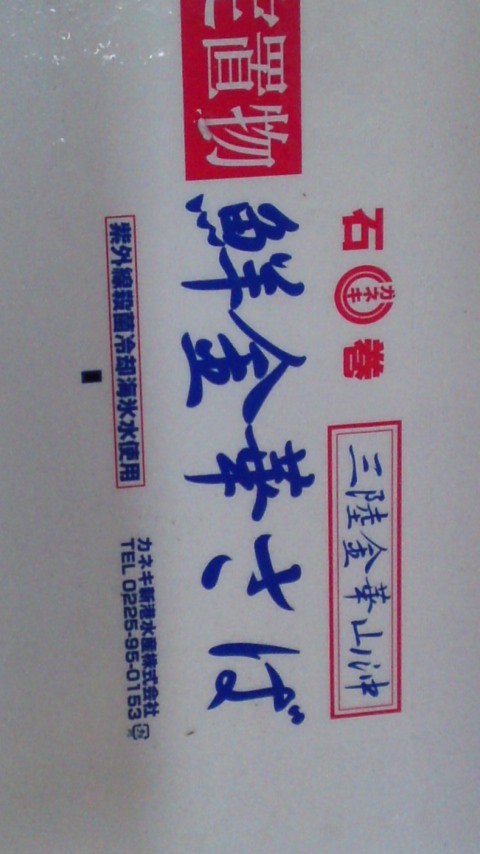 置物
石 カネキ 巻
三陸金華山沖
鮮金華さば
紫外線殺菌冷却海氷水使用
カネキ新港水産株式会社
TEL 0225-95-0153